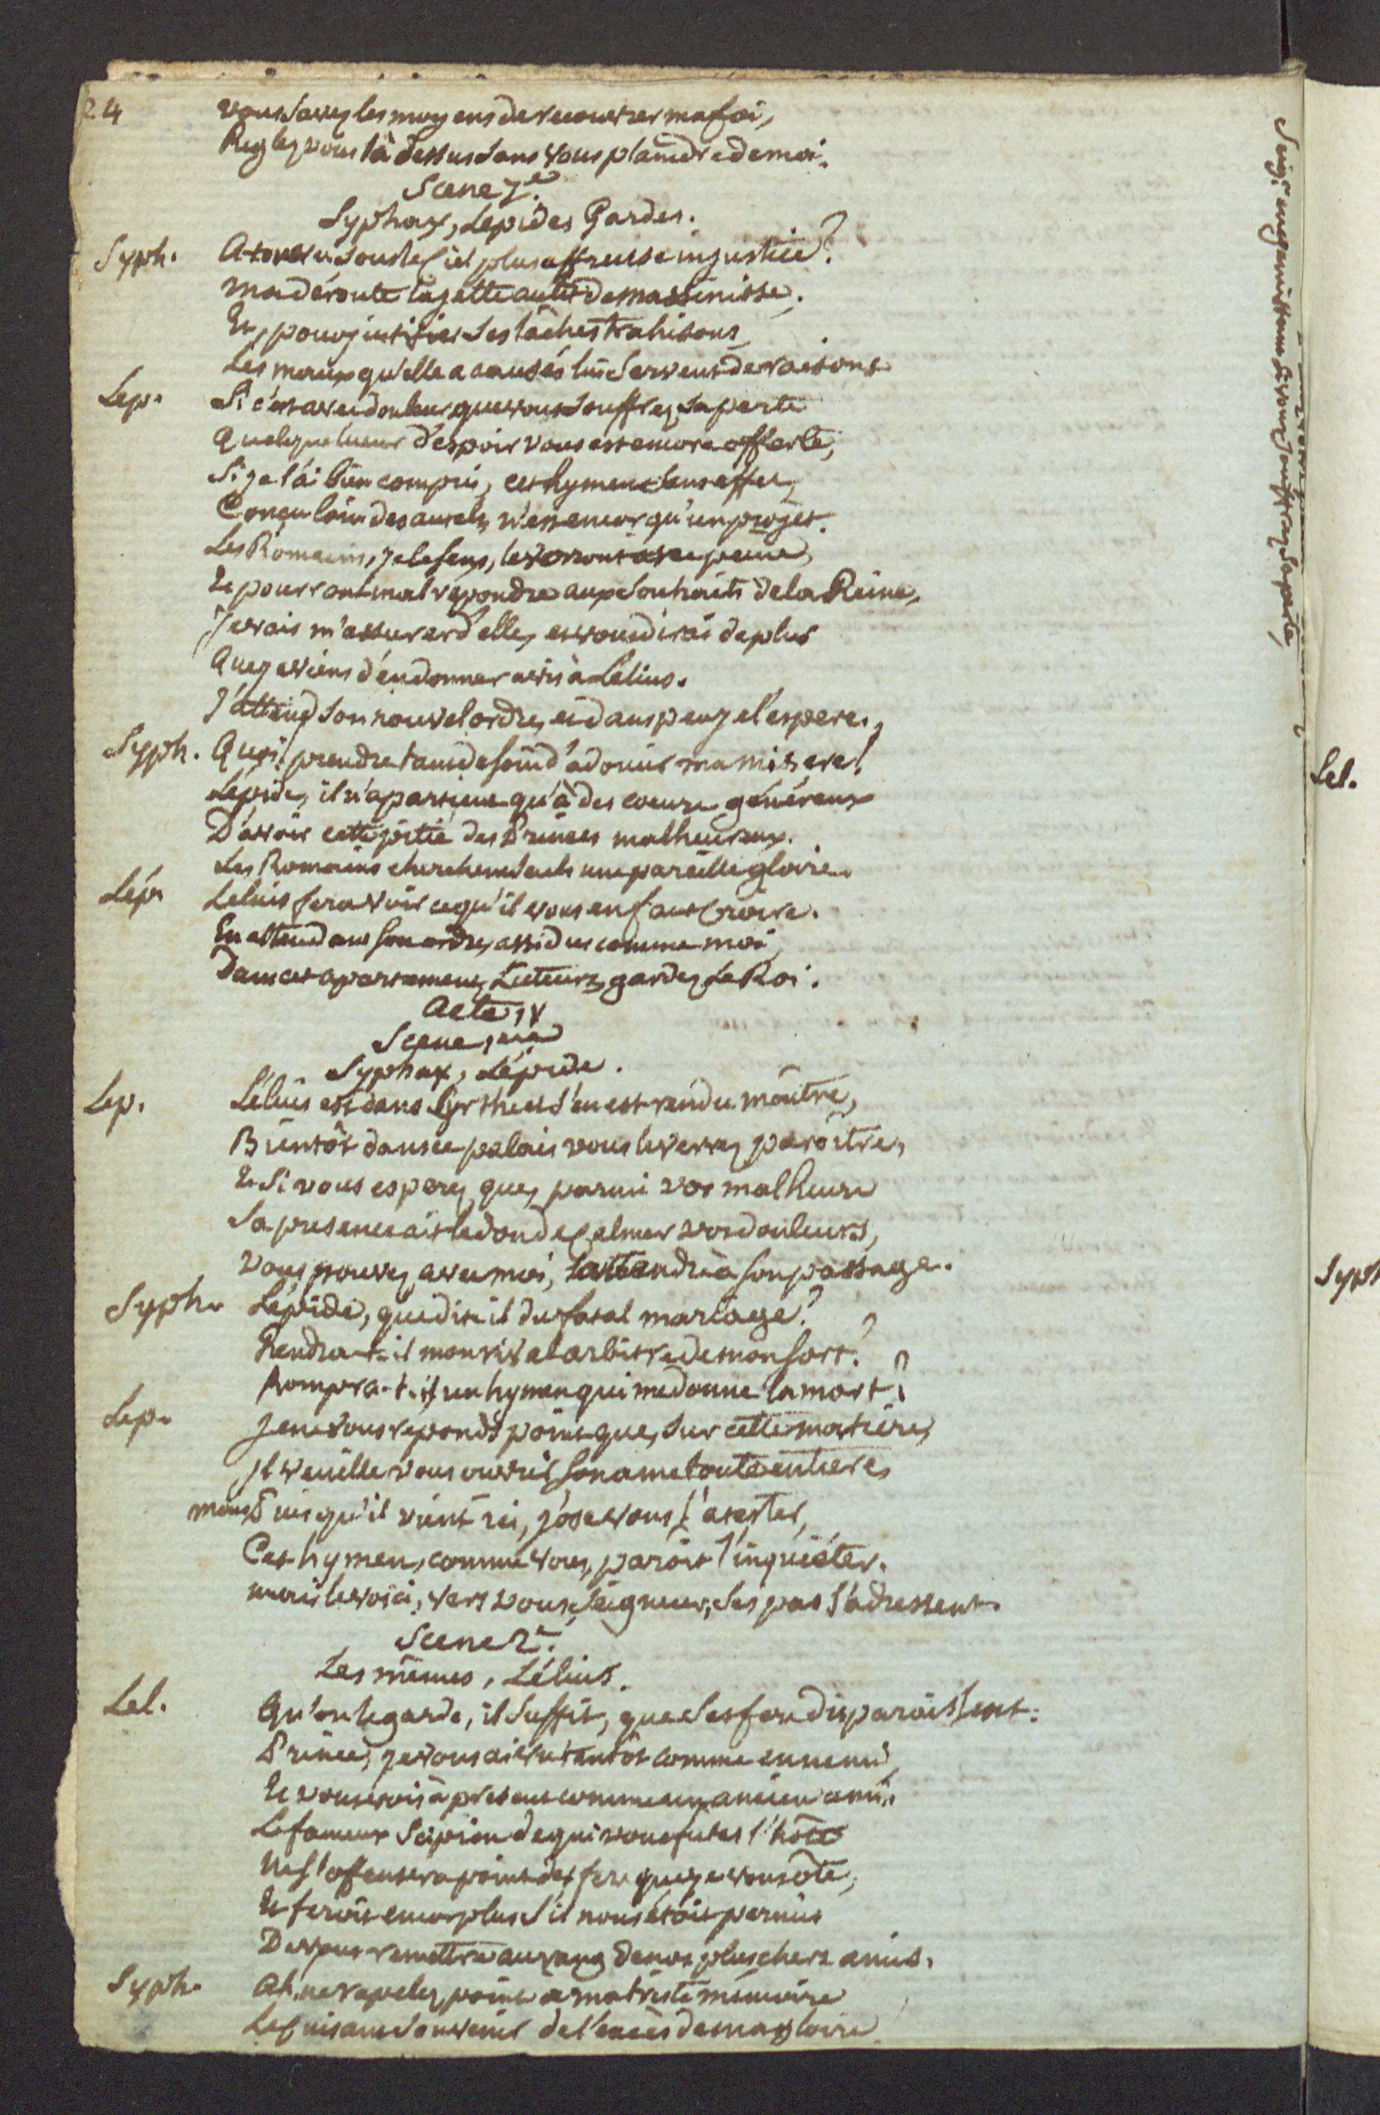 24
vous savez les moyens de recouvrer ma foi,
Reglez vous là dessus sans vous plaindre de moi.
Scene 7e.
Syphax, Lepide, Gardes.
Syph. A-t-on vu sous le Ciel plus affreuse injustice?
ma déroute la jette aux de massinisse,
Et, pour justifier ses lâches trahisons,
Les maux qu'elle a causés lui servent de raisons
Lep. Si c'est avec douleur que vous souffrez sa perte
Quelque lueur d'espoir vous est encore offerte,
Si je l'ai bien compris, cet hymen sans effet,
Conçu loin des autels, n'est encor qu'un projet.
Les Romains, je le sens, le verront avec peine,
Et pourront mal répondre aux souhaits de la Reine,
Je vais m'assurer d'elle, et vous dirai de plus
Que je viens d'en donner avis à Lélius.
J'attend son nouvel ordre, et dans peu je l'espere.
Syph. Quoi! prendre tant de soin d'adoucir ma misere!
Lépide, il n'apartient qu'à des coeurs généreux
D'avoir cette pitié des Princes malheureux.
Les Romains cherchent seuls une pareille gloire.
Lép. Lelius fera voir ce qu'il vous en faut croire.
En attendant son ordre, assidus comme moi,
Dans cet apartement, Licteurs, gardez Le Roi.
Acte IV
Scene 1ere
Syphax, Lépide.
Lep. Lélius est dans Cyrthe et s'en est rendu maître,
Bientôt dans ce palais vous le verrez paroître,
Et si vous esperez que, parmi vos malheurs
Sa presence ait le don de calmer vos douleurs,
Vous pouvez avec moi, l'attendre à son passage.
Syph. Lépide, que dit il du fatal mariage?
Rendra-t-il mon rival arbitre de mon sort?
Rompra-t-il un hymen qui me donne la mort?
Lep. Je ne vous reponds point que, sur cette matiere,
Il veuille vous ouvrir son ame toute entiere,
mais Puisqu'il vient ici, j'ose vous l'atester,
Cet hymen, comme vous, paroit l'inquiéter.
mais le voici, vers vous, Seigneur, ses pas s'adressent.
Scene 2e.
Les mêmes, Lélius.
Lel. Qu'on le garde, il suffit, que ses fers disparoissent.
Prince, je vous ai vu tantôt comme ennemi,
Et vous vois à present comme un ancien ami.
Le fameux Scipion de qui vous futes l'hôte
Ne s'offensera point des fers que je vous ôte,
Et feroit encor plus s'il nous étoit permis
De vous remettre au rang de nos plus chers amis.
Syph. Ah, ne rapelez point a ma triste mémoire
Le cuisant souvenir de l'excès de ma gloire
Seigr. si vous souffrez sa perte,
Lel.
Syph